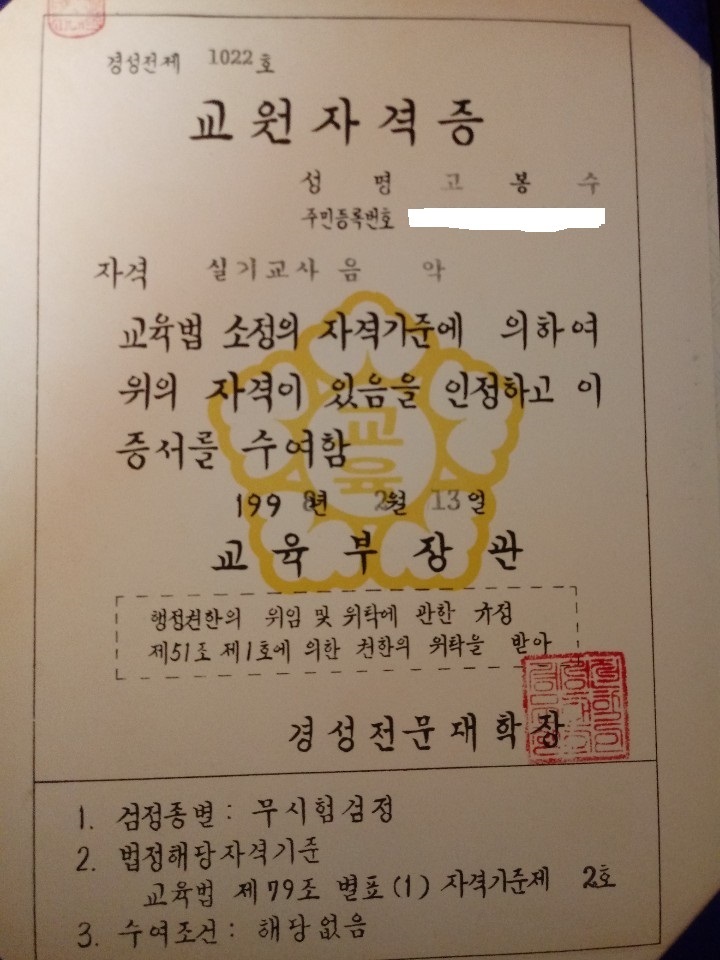 경성전제 1022호
교원자격증
성 명 고 봉 수
주민등록번호
자격 실기교사 음 악
교육법 소정의 자격기준에 의하여
위의 자격이 있음을 인정하고 이
증서를 수여함
교육
1998년 2월 13일
교육부장관
행정권한의 위임 및 위탁에 관한 규정
제51조 제1호에 의한 권한의 위탁을 받아
경성전문대학장
1. 검정종별: 무시험검정
2. 법정해당자격기준
교육법 제79조 별표(1) 자격기준제 2호
3. 수여조건: 해당없음